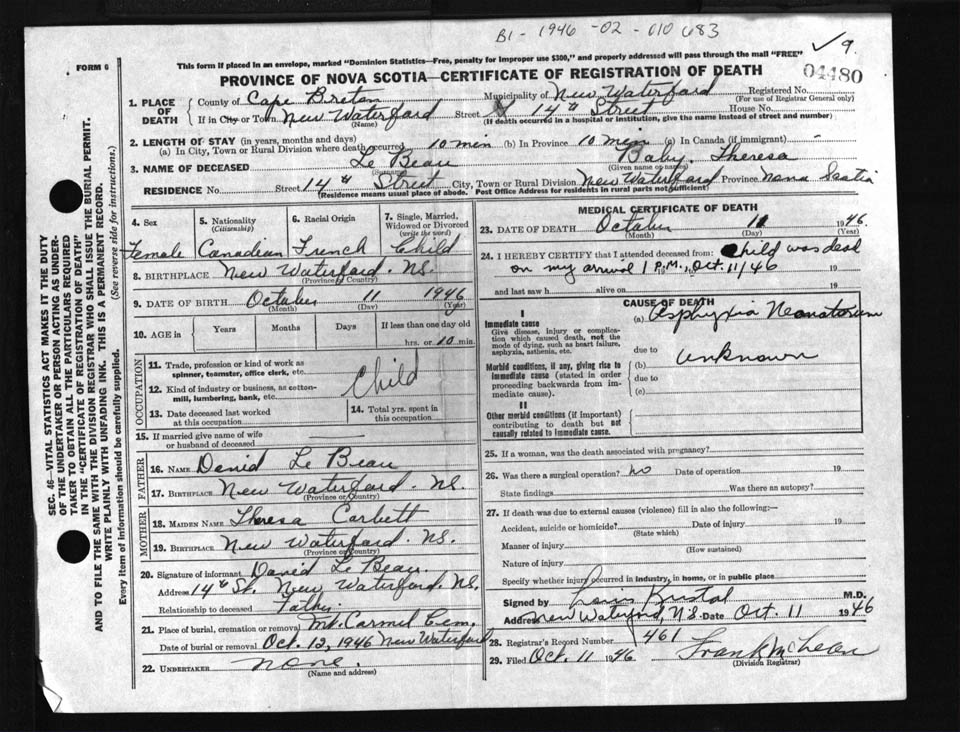 B1 - 1946 - 02 - 010 683
✓ 9.
04480
FORM 6
This form if placed in an envelope, marked "Dominion Statistics—Free, penalty for improper use $300," and properly addressed will pass through the mail "FREE"
PROVINCE OF NOVA SCOTIA—CERTIFICATE OF REGISTRATION OF DEATH
1. PLACE OF DEATH
County of Cape Breton Municipality of New Waterford Registered No.
(For use of Registrar General only)
If in City or Town New Waterford Street 14th Street House No.
(Name) (If death occurred in a hospital or institution, give the name instead of street and number)
2. LENGTH OF STAY (in years, months and days)
(a) In City, Town or Rural Division where death occurred 10 min (b) In Province 10 min (c) In Canada (if immigrant) -
3. NAME OF DECEASED Le Beau Baby Theresa
(Surname) (Given name or names)
RESIDENCE No. Street 14th Street City, Town or Rural Division New Waterford Province Nova Scotia
(Residence means usual place of abode. Post Office Address for residents in rural parts not sufficient)
4. Sex Female
5. Nationality (Citizenship) Canadian
6. Racial Origin French
7. Single, Married, Widowed or Divorced (write the word) Child
8. BIRTHPLACE New Waterford. NS.
(Province or Country)
9. DATE OF BIRTH October 11 1946
(Month) (Day) (Year)
10. AGE in Years Months Days If less than one day old
hrs. or 10 min.
OCCUPATION
11. Trade, profession or kind of work as spinner, teamster, office clerk, etc.
12. Kind of industry or business, as cotton-mill, lumbering, bank, etc.
Child
13. Date deceased last worked at this occupation
14. Total yrs. spent in this occupation
15. If married give name of wife or husband of deceased
FATHER
16. NAME David Le Beau
17. BIRTHPLACE New Waterford. NS.
(Province or Country)
MOTHER
18. MAIDEN NAME Theresa Corbett
19. BIRTHPLACE New Waterford. NS.
(Province or Country)
20. Signature of informant David Le Beau.
Address 14th St. New Waterford. NS.
Relationship to deceased Father
21. Place of burial, cremation or removal Mt. Carmel Cem.
Date of burial or removal Oct. 12, 1946 New Waterford
22. UNDERTAKER None.
(Name and address)
MEDICAL CERTIFICATE OF DEATH
23. DATE OF DEATH October 11 1946
(Month) (Day) (Year)
24. I HEREBY CERTIFY that I attended deceased from: Child was dead
on my arrival 1 P.M., Oct. 11/46 19
and last saw h alive on 19
CAUSE OF DEATH
I
Immediate cause
Give disease, injury or complication which caused death, not the mode of dying, such as heart failure, asphyxia, asthenia, etc.
(a) Asphyxia Neonatorum
due to
Morbid conditions, if any, giving rise to immediate cause (stated in order proceeding backwards from immediate cause).
(b) unknown
due to
(c)
II
Other morbid conditions (if important) contributing to death but not causally related to immediate cause.
25. If a woman, was the death associated with pregnancy?
26. Was there a surgical operation? No Date of operation 19
State findings Was there an autopsy?
27. If death was due to external causes (violence) fill in also the following:—
Accident, suicide or homicide? Date of injury 19
(State which)
Manner of injury
(How sustained)
Nature of injury
Specify whether injury occurred in industry, in home, or in public place
Signed by Louis Bristol M.D.
Address New Waterford, N.S. Date Oct. 11 1946
28. Registrar's Record Number 461
29. Filed Oct. 11 1946 Frank McLean
(Division Registrar)
SEC. 46—VITAL STATISTICS ACT MAKES IT THE DUTY
OF THE UNDERTAKER OR PERSON ACTING AS UNDER-
TAKER TO OBTAIN ALL THE PARTICULARS REQUIRED
IN THE "CERTIFICATE OF REGISTRATION OF DEATH"
AND TO FILE THE SAME WITH THE DIVISION REGISTRAR WHO SHALL ISSUE THE BURIAL PERMIT.
WRITE PLAINLY WITH UNFADING INK. THIS IS A PERMANENT RECORD.
Every item of information should be carefully supplied. (See reverse side for instructions.)